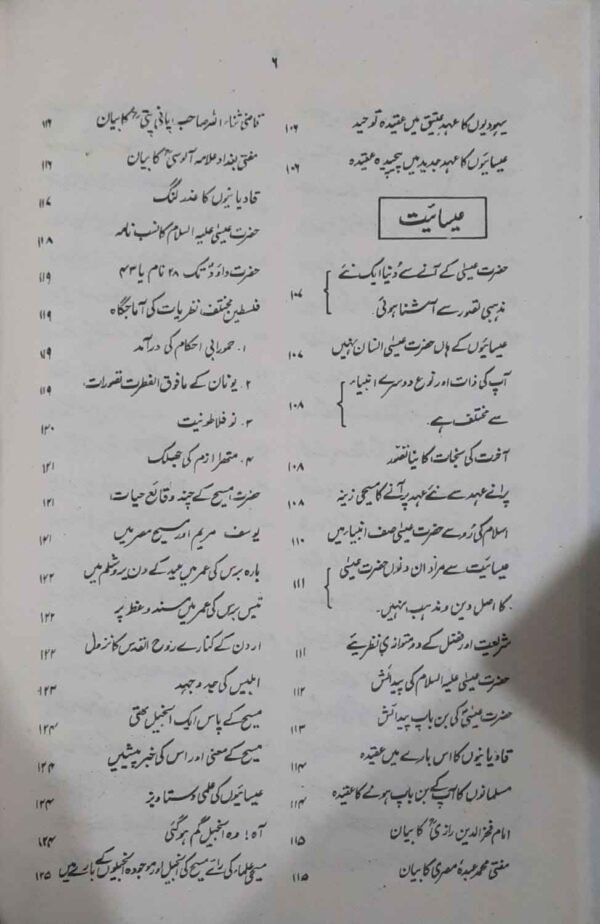 ۶
یہودیوں کا عہدِ عتیق میں عقیدہ توحید ۱۰۶
عیسائیوں کا عہدِ جدید میں پیچیدہ عقیدہ ۱۰۶
عیسائیت
حضرت عیسیٰ کے آنے سے دُنیا ایک نئے
مذہبی تصور سے آشنا ہوئی ۱۰۷
عیسائیوں کے ہاں حضرت عیسیٰ انسان نہیں ۱۰۷
آپ کی ذات اور نوع دوسرے انبیاء
سے مختلف ہے۔ ۱۰۸
آخرت کی نجات، کا نیا تصور ۱۰۸
پرانے عہد سے نئے عہد پر آنے کا مسیحی زینہ ۱۰۸
اسلام کی رُو سے حضرت عیسیٰ صف انبیاء میں ۱۱۰
عیسائیت سے مراد ان دنوں حضرت عیسیٰ
کا اصل دین و مذہب نہیں۔ ۱۱۱
شریعت اور فضل کے دو متوازی نظریئے ۱۱۱
حضرت عیسیٰ علیہ السلام کی پیدائش ۱۱۲
حضرت عیسیٰؑ کی بن باپ پیدائش ۱۱۳
قادیانیوں کا اس بارے میں عقیدہ ۱۱۴
مسلمانوں کا آپ کے بن باپ ہونے کا عقیدہ ۱۱۴
امام فخر الدین رازیؒ کا بیان ۱۱۵
مفتی محمد عبدہٗ مصری کا بیان ۱۱۵
قاضی ثناء اللہ صاحب پانی پتیؒ کا بیان ۱۱۶
مفتی بغداد علامہ آلوسیؒ کا بیان ۱۱۶
قادیانیوں کا عذر لنگ ۱۱۷
حضرت عیسیٰ علیہ السلام کا نسب نامہ ۱۱۸
حضرت داؤدؑ تک ۲۸ نام یا ۴۳ ۱۱۹
فلسطین مختلف نظریات کی آماجگاہ ۱۱۹
۱. حمورابی احکام کی درآمد ۱۱۹
۲. یونان کے مافوق الفطرت تصورات، ۱۱۹
۳. نو فلاطونیت ۱۲۰
۴. متھرا ازم کی جھلک ۱۲۱
حضرت المسیح کے چند وقائع حیات، ۱۲۱
یوسف مریم اور مسیح مصر میں ۱۲۱
بارہ برس کی عمر میں عید کے دن یروشلم میں ۱۲۲
تیس برس کی عمر میں مسند وعظ پر ۱۲۲
اردن کے کنارے رُوح القدس کا نزول ۱۲۲
ابلیس کی جدوجہد ۱۲۳
مسیح کے پاس ایک انجیل تھی ۱۲۴
مسیح کے معنی اور اس کی خبر پیشیں ۱۲۴
عیسائیوں کی علمی دستاویز ۱۲۴
آہ! وہ انجیل گم ہو گئی ۱۲۴
مسیحی علماء کی رائے مسیح کی انجیل اور موجودہ انجیلوں کے بارے میں ۱۲۵